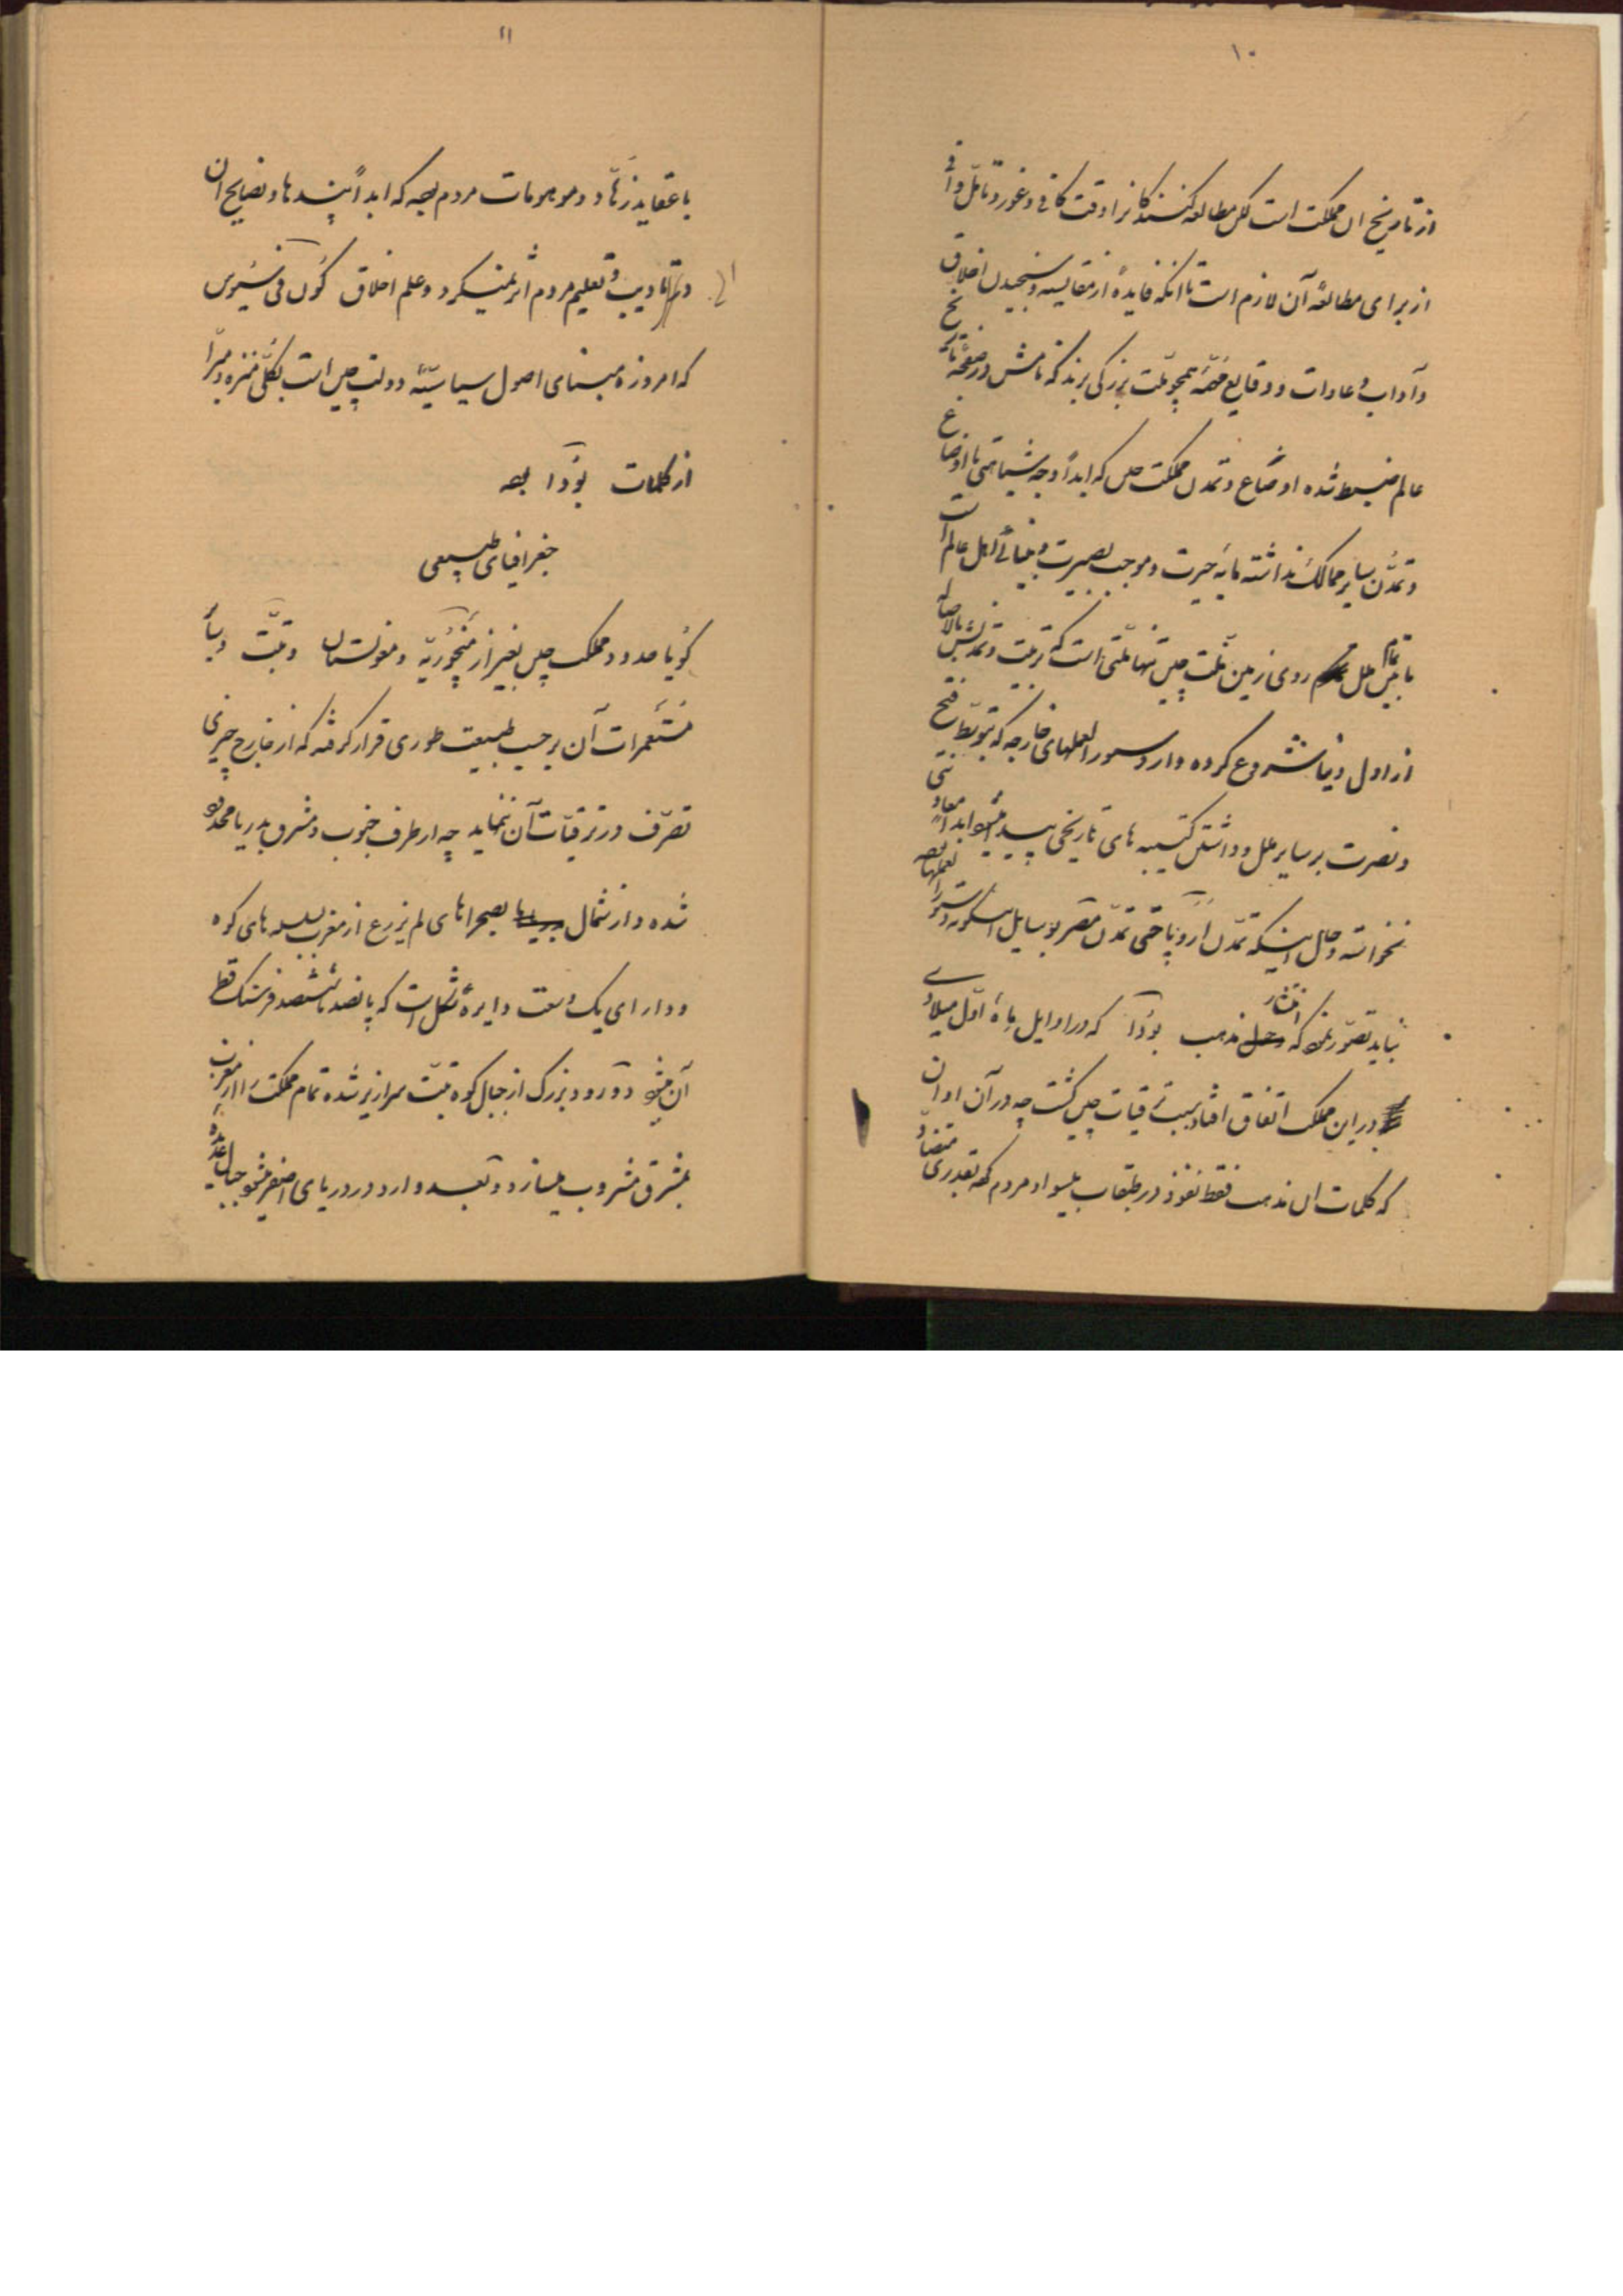 ۱۰
از تاریخ این مملکت است لکن مطالعه کنندگانرا دقت کافی و غور و تأمل وافی
از برای مطالعهٔ آن لازم است تا آنکه فایدهٔ از مقایسه و سنجیدن اخلاق
و آداب و عادات و وقایع مهمّهٔ همچو ملت بزرگی برند که نامش در صفحهٔ تاریخ
عالم ضبط شده اوضاع و تمدن مملکت چین که ابداً وجه شباهتی با اوضاع
و تمدّن سایر ممالک نداشته مایهٔ حیرت و موجب بصیرت و بینائی اهل عالم است
مابین تمام ملل روی زمین ملت چین تنها ملتی است که تربیت و تمدنش بالاصاله
از اول دنیا شروع کرده و از دستورالعملهای خارجه که بتوسط فتح
و نصرت بر سایر ملل و داشتن کتیبه های تاریخی پیدا میشود ابداً معاونتی
نخواسته و حال اینکه تمدّن اروپا حتی تمدّن مصر بوسایل اینگونه دستورالعملها بوده
نباید تصوّر نمود که انتشار مذهب بودا که در اوایل مأهٔ اول میلادی
در این مملکت اتفاق افتاد سبب ترقیات چین گشت چه در آن اوان
که کلمات این مذهب فقط نفوذ در طبقات بیسواد مردم کرد بقدری متضاد
۱۱
با عقاید زهّاد و موهومات مردم بوده که ابداً پندها و نصایح آن
در تأدیب و تعلیم مردم اثر نمیکرد و علم اخلاق کون فی سیوس
که امروزه مبنای اصول سیاسیّهٔ دولت چین است بکلّی منزه و مبرّا
از کلمات بودا بوده
جغرافیای طبیعی
گویا حدود مملکت چین بغیر از منچوریّه و مغولستان و تبّت و سایر
مستعمرات آن بر حسب طبیعت طوری قرار گرفته که از خارج چیزی
تصرّف در ترقیّات آن ننماید چه از طرف جنوب و مشرق بدریا محدود
شده و از شمال بصحراهای لم یزرع از مغرب بسلسله های کوه
و دارای یک وسعت دایره شکل است که پانصد تا ششصد فرسنگ قطر
آن میشود دو رود بزرگ از جبال کوه تبّت سرازیر شده تمام مملکت را از مغرب
بمشرق مشروب میسازد و بعد وارد در دریای اصفر میشود جبال عمده